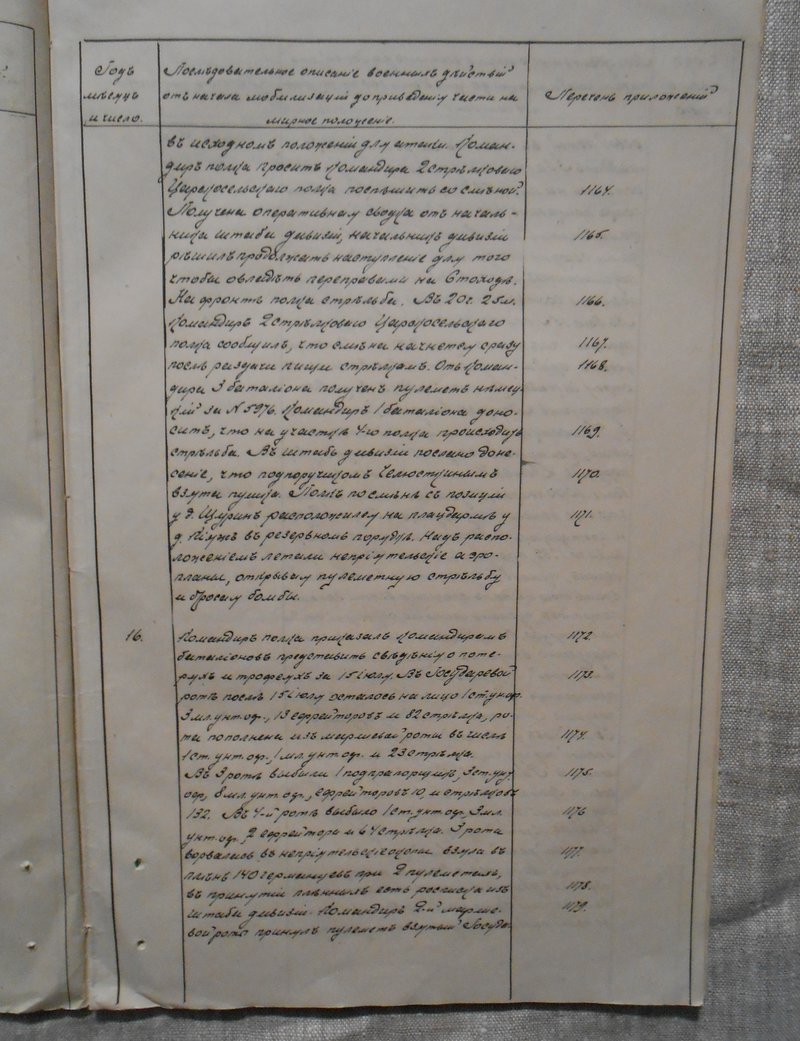 Годъ
мѣсяцъ
и число.
Послѣдовательное описаніе военныхъ дѣйствій
отъ начала мобилизаціи до приведенія части на
мирное положеніе.
Перечень приложеній
въ исходномъ положеніи для атаки. Коман-
диръ полка проситъ Командира 2 стрѣлковаго
Царскосельскаго полка поспѣшить со смѣной. 1164.
Получена оперативная сводка отъ началь-
ника штаба дивизіи, начальникъ дивизіи 1165.
рѣшилъ продолжать наступленіе для того
чтобы овладѣть переправами на Стоходѣ.
На фронтѣ полка стрѣльба. Въ 20 ч. 25 м. 1166.
Командиръ 2 стрѣлковаго Царскосельскаго
полка сообщилъ, что смѣна начнется сразу 1167.
послѣ раздачи пищи стрѣлкамъ. Отъ Коман- 1168.
дира 3 баталіона полученъ пулеметъ нѣмец-
кій за № 5976. Командиръ 1 баталіона доно-
ситъ, что на участкѣ 4-го полка происходитъ 1169.
стрѣльба. Въ штабъ дивизіи послано доне-
сеніе, что подпоручикомъ Челюсткинымъ 1170.
взята пушка. Полкъ по смѣнѣ съ позиціи
у д. расположился на плацдармѣ у 1171.
д. въ резервномъ порядкѣ. Надъ распо-
ложеніемъ летали непріятельскіе аэро-
планы, открывая пулеметную стрѣльбу
и бросая бомбы.
16. Командиръ полка приказалъ Командирамъ 1172.
баталіоновъ представить свѣдѣнія о поте-
ряхъ и трофеяхъ за 15 іюля. Въ Государевой 1173.
ротѣ послѣ 15 іюля осталось на лицо 1 ст. унт. оф.
3 мл. унт. оф., 13 ефрейторовъ и 82 стрѣлка, ро-
та пополнена изъ маршевой роты въ числѣ 1174.
1 ст. унт. оф., 1 мл. унт. оф. и 23 стрѣлка.
Въ 3 ротѣ выбыли 1 подпрапорщикъ, 3 ст. унт. 1175.
оф., 8 мл. унт. оф., ефрейторовъ 10, и стрѣлковъ
132. Въ 4-й ротѣ выбыло 1 ст. унт. оф., 3 мл. 1176
унт. оф., 2 ефрейтора и 64 стрѣлка. 3 рота
ворвалась въ непріятельскіе окопы взяла въ 1177.
плѣнъ 140 германцевъ при 2 пулеметахъ,
въ принятіи плѣнныхъ есть росписка изъ 1178.
штаба дивизіи. Командиръ 2-й марше- 1179.
вой роты принялъ пулеметъ взятый Госуда-